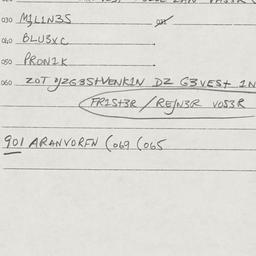 030 M1L1N3S 031
040 BLU3XC
050 PRON1K
060 ZOT YZG3S+VENK1N DZ G3VES+ 1N
FR1S+3R / REJN3R VOS3R
901 ARANVORFN (069 (065